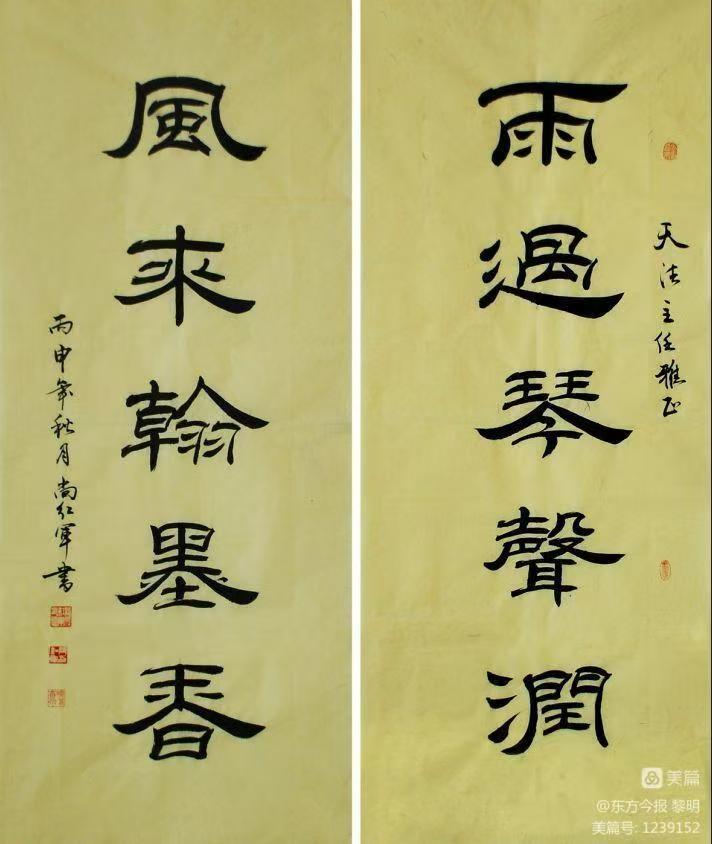 天法主任雅正
雨過琴聲潤
風來翰墨香
丙申年秋月尚仁軍書
美篇
@东方今报 黎明
美篇号: 1239152